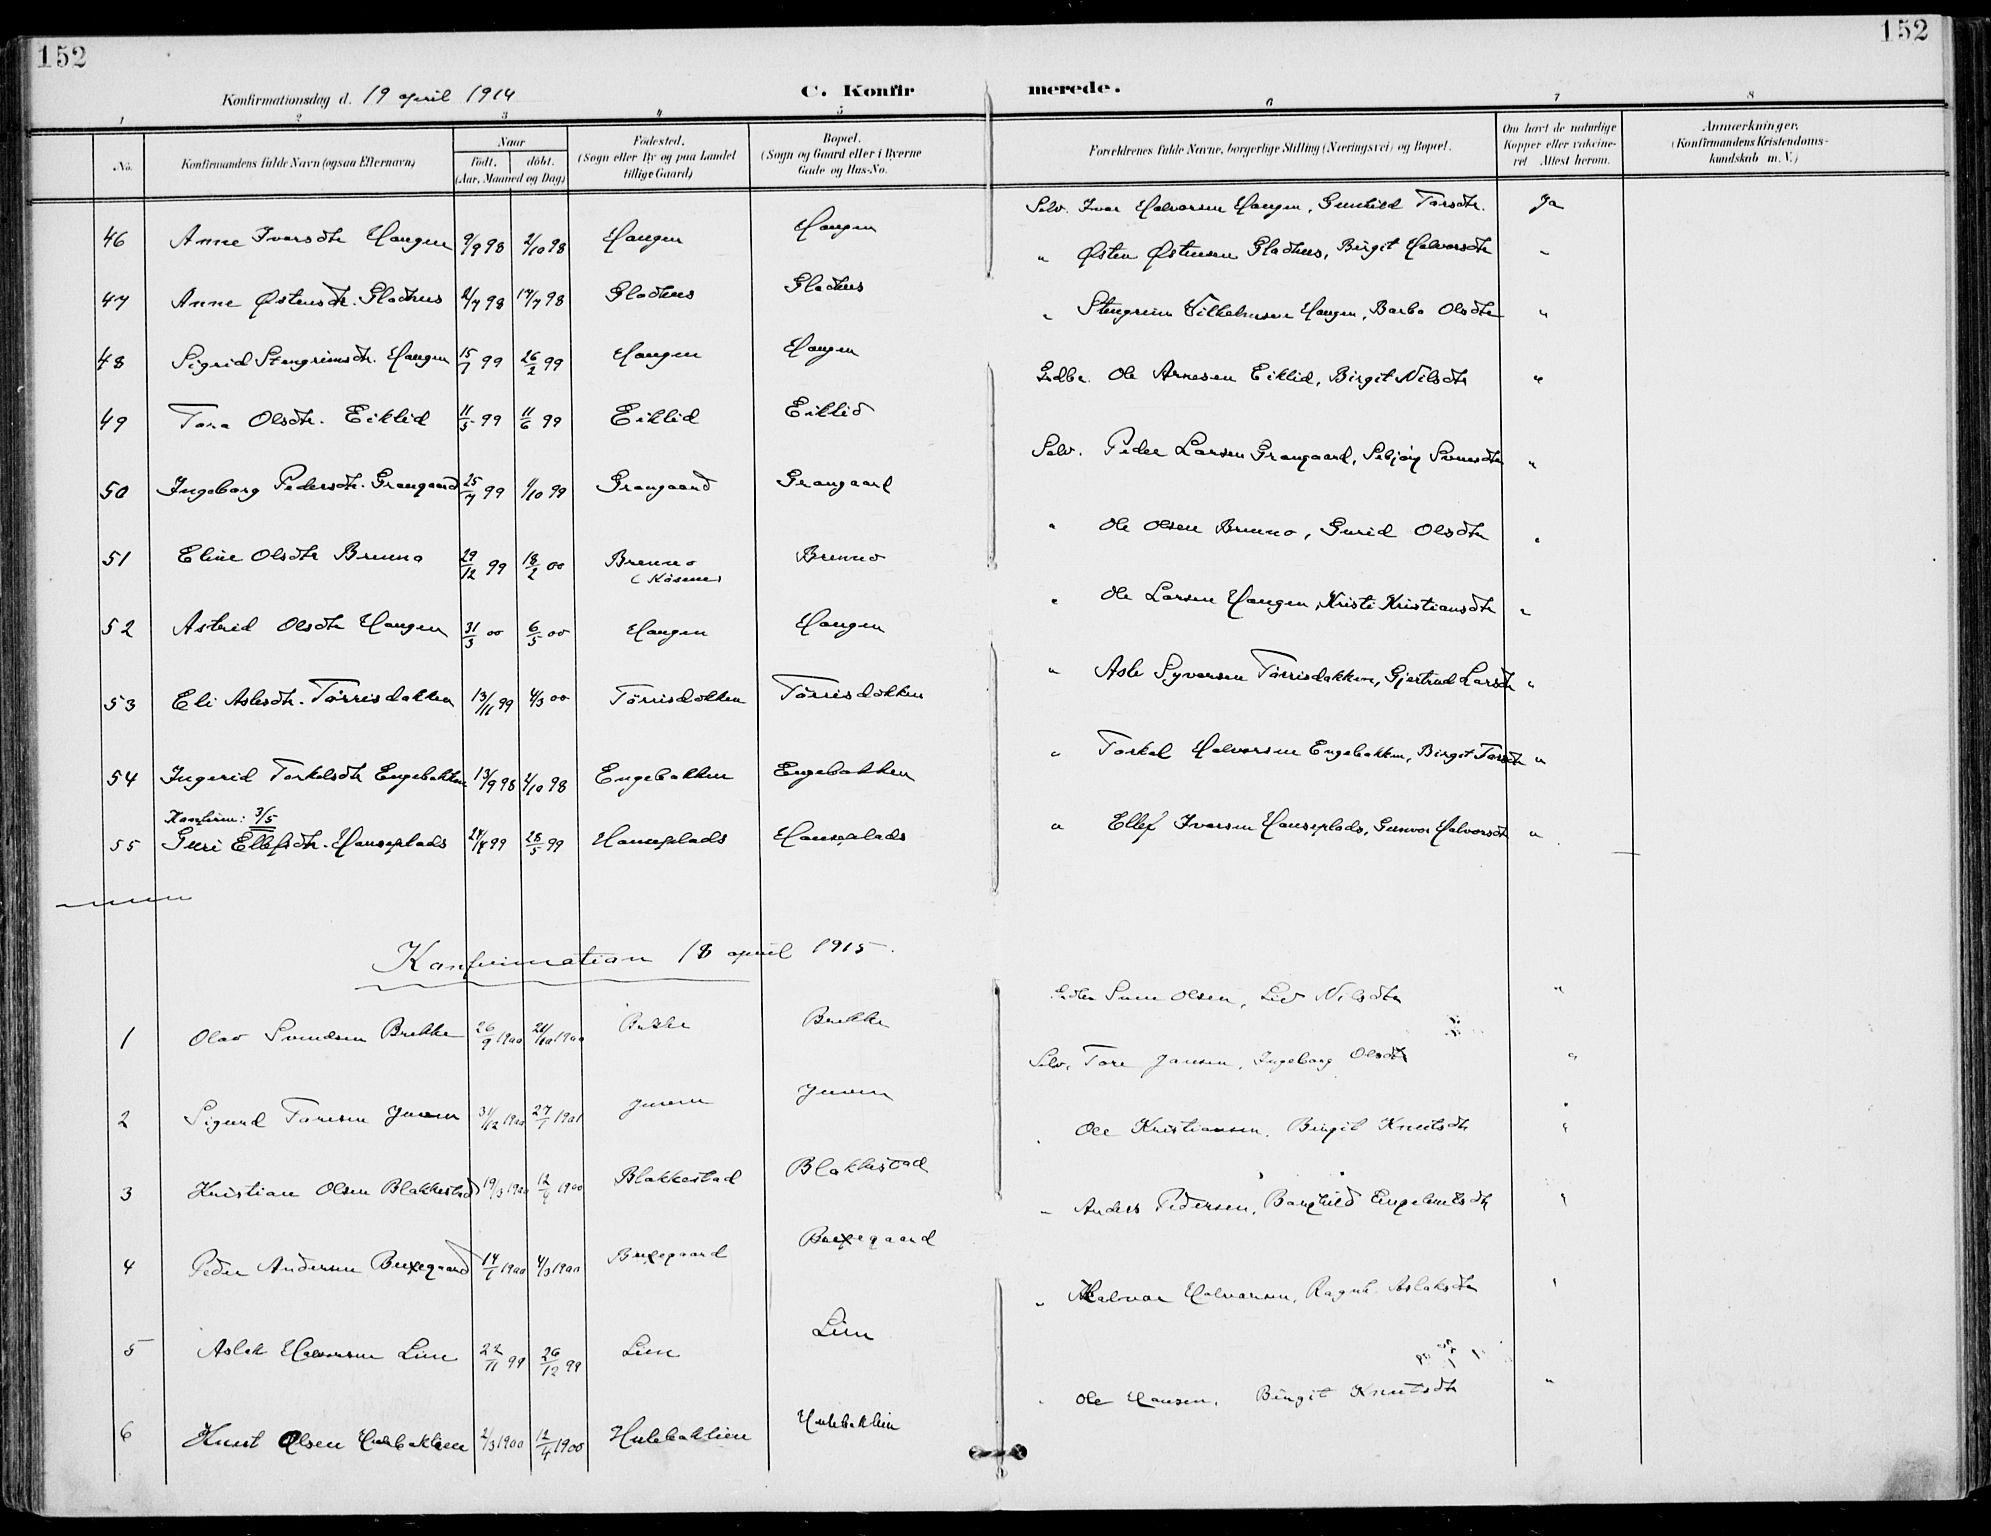 152
152
Konfirmationsdag d. 19 april 1914
C. Konfir merede.
1 2 3 4 5 6 7 8
No.
Konfirmandens fulde Navn (ogsaa Efternavn)
Naar
födt. döbt.
(Aar, Maaned og Dag)
Födested.
(Sogn eller By og paa Landet
tillige Gaard)
Bopæl.
(Sogn og Gaard eller i Byerne
Gade og Hus-No.
Forældrenes fulde Navne, borgerlige Stilling (Næringsvei) og Bopæl.
Om havt de naturlige
Kopper eller vakcine-
ret Attest herom.
Anmærkninger.
(Konfirmandens Kristendoms-
kundskab m. V.)
46 Anne Iversdtr Haugen 9/9 98 2/10 98 Haugen Haugen Selv. Iver Halvorsen Haugen, Gunhild Torsdtr. Ja
47 Anne Østensdtr. Gladhus 2/7 98 17/7 98 Gladhus Gladhus " Østen Østensen Gladhus, Birgit Halvorsdtr "
48 Sigrid Stengrimsdtr. Haugen 15/1 99 26/2 99 Haugen Haugen " Stengrim Vilhelmsen Haugen, Barbo Olsdtr "
49 Tora Olsdtr. Eiklid 11/5 99 11/6 99 Eiklid Eiklid Grdbr. Ole Arnesen Eiklid, Birgit Nilsdtr "
50 Ingeborg Pedersdtr. Grangaard 25/7 99 1/10 99 Grangaard Grangaard Selv. Peder Larsen Grangaard, Sebjørg Svensdtr "
51 Eline Olsdtr Brenno 29/12 99 18/2 00 Brenno Brenno " Ole Olsen Brenno, Gurid Olsdtr "
52 Astrid Olsdtr Haugen 31/3 00 6/5 00 Haugen Haugen " Ole Larsen Haugen, Kristi Kristiansdtr "
53 Eli Aslesdtr. Tørrisdokken 13/11 99 4/3 00 Tørrisdokken Tørrisdokken " Asle Syversen Tørrisdokken, Gjertrud Larsdtr "
54 Ingerid Torkelsdtr Engebakken 13/9 98 2/10 98 Engebakken Engebakken " Torkel Halvorsen Engebakken, Birgit Torsdtr "
Konfirm: 3/5
55 Guri Ellefsdtr. Hauseplads 24/4 99 28/5 99 Hauseplads Hauseplads " Ellef Iversen Hauseplads, Gunvor Halvorsdtr "
Konfirmation 18 april 1915.
1 Olav Svendsen Brekke 26/9 1900 21/10 1900 Brekke Brekke Grdbr Sven Olsen, Liv Nilsdtr "
2 Sigurd Toresen Juvem 31/12 1900 27/1 1901 Juvem Juvem Selv. Tore Jansen, Ingeborg Olsdtr "
3 Kristian Olsen Blakkestad 19/3 1900 12/4 1900 Blakkestad Blakkestad " Ole Kristiansen, Birgit Knutsdtr "
4 Peder Andersen Buxegaard 14/1 1900 4/3 1900 Buxegaard Buxegaard " Anders Pedersen, Borghild Engebretsdtr "
5 Aslak Halvorsen Lien 22/11 99 26/12 99 Lien Lien " Halvor Halvorsen, Ragnh. Aslaksdtr "
6 Knut Olsen Hulebakken 2/3 1900 12/4 1900 Hulebakken Hulebakken " Ole Hansen, Birgit Knutsdtr "